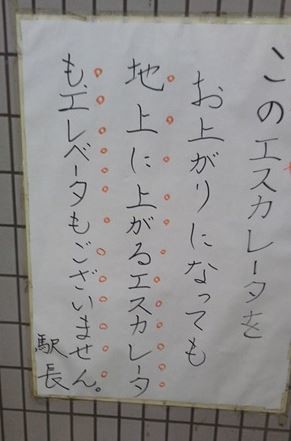 このエスカレータを
お上がりになっても
地上に上がるエスカレータ
も、エレベータもございません。
駅長